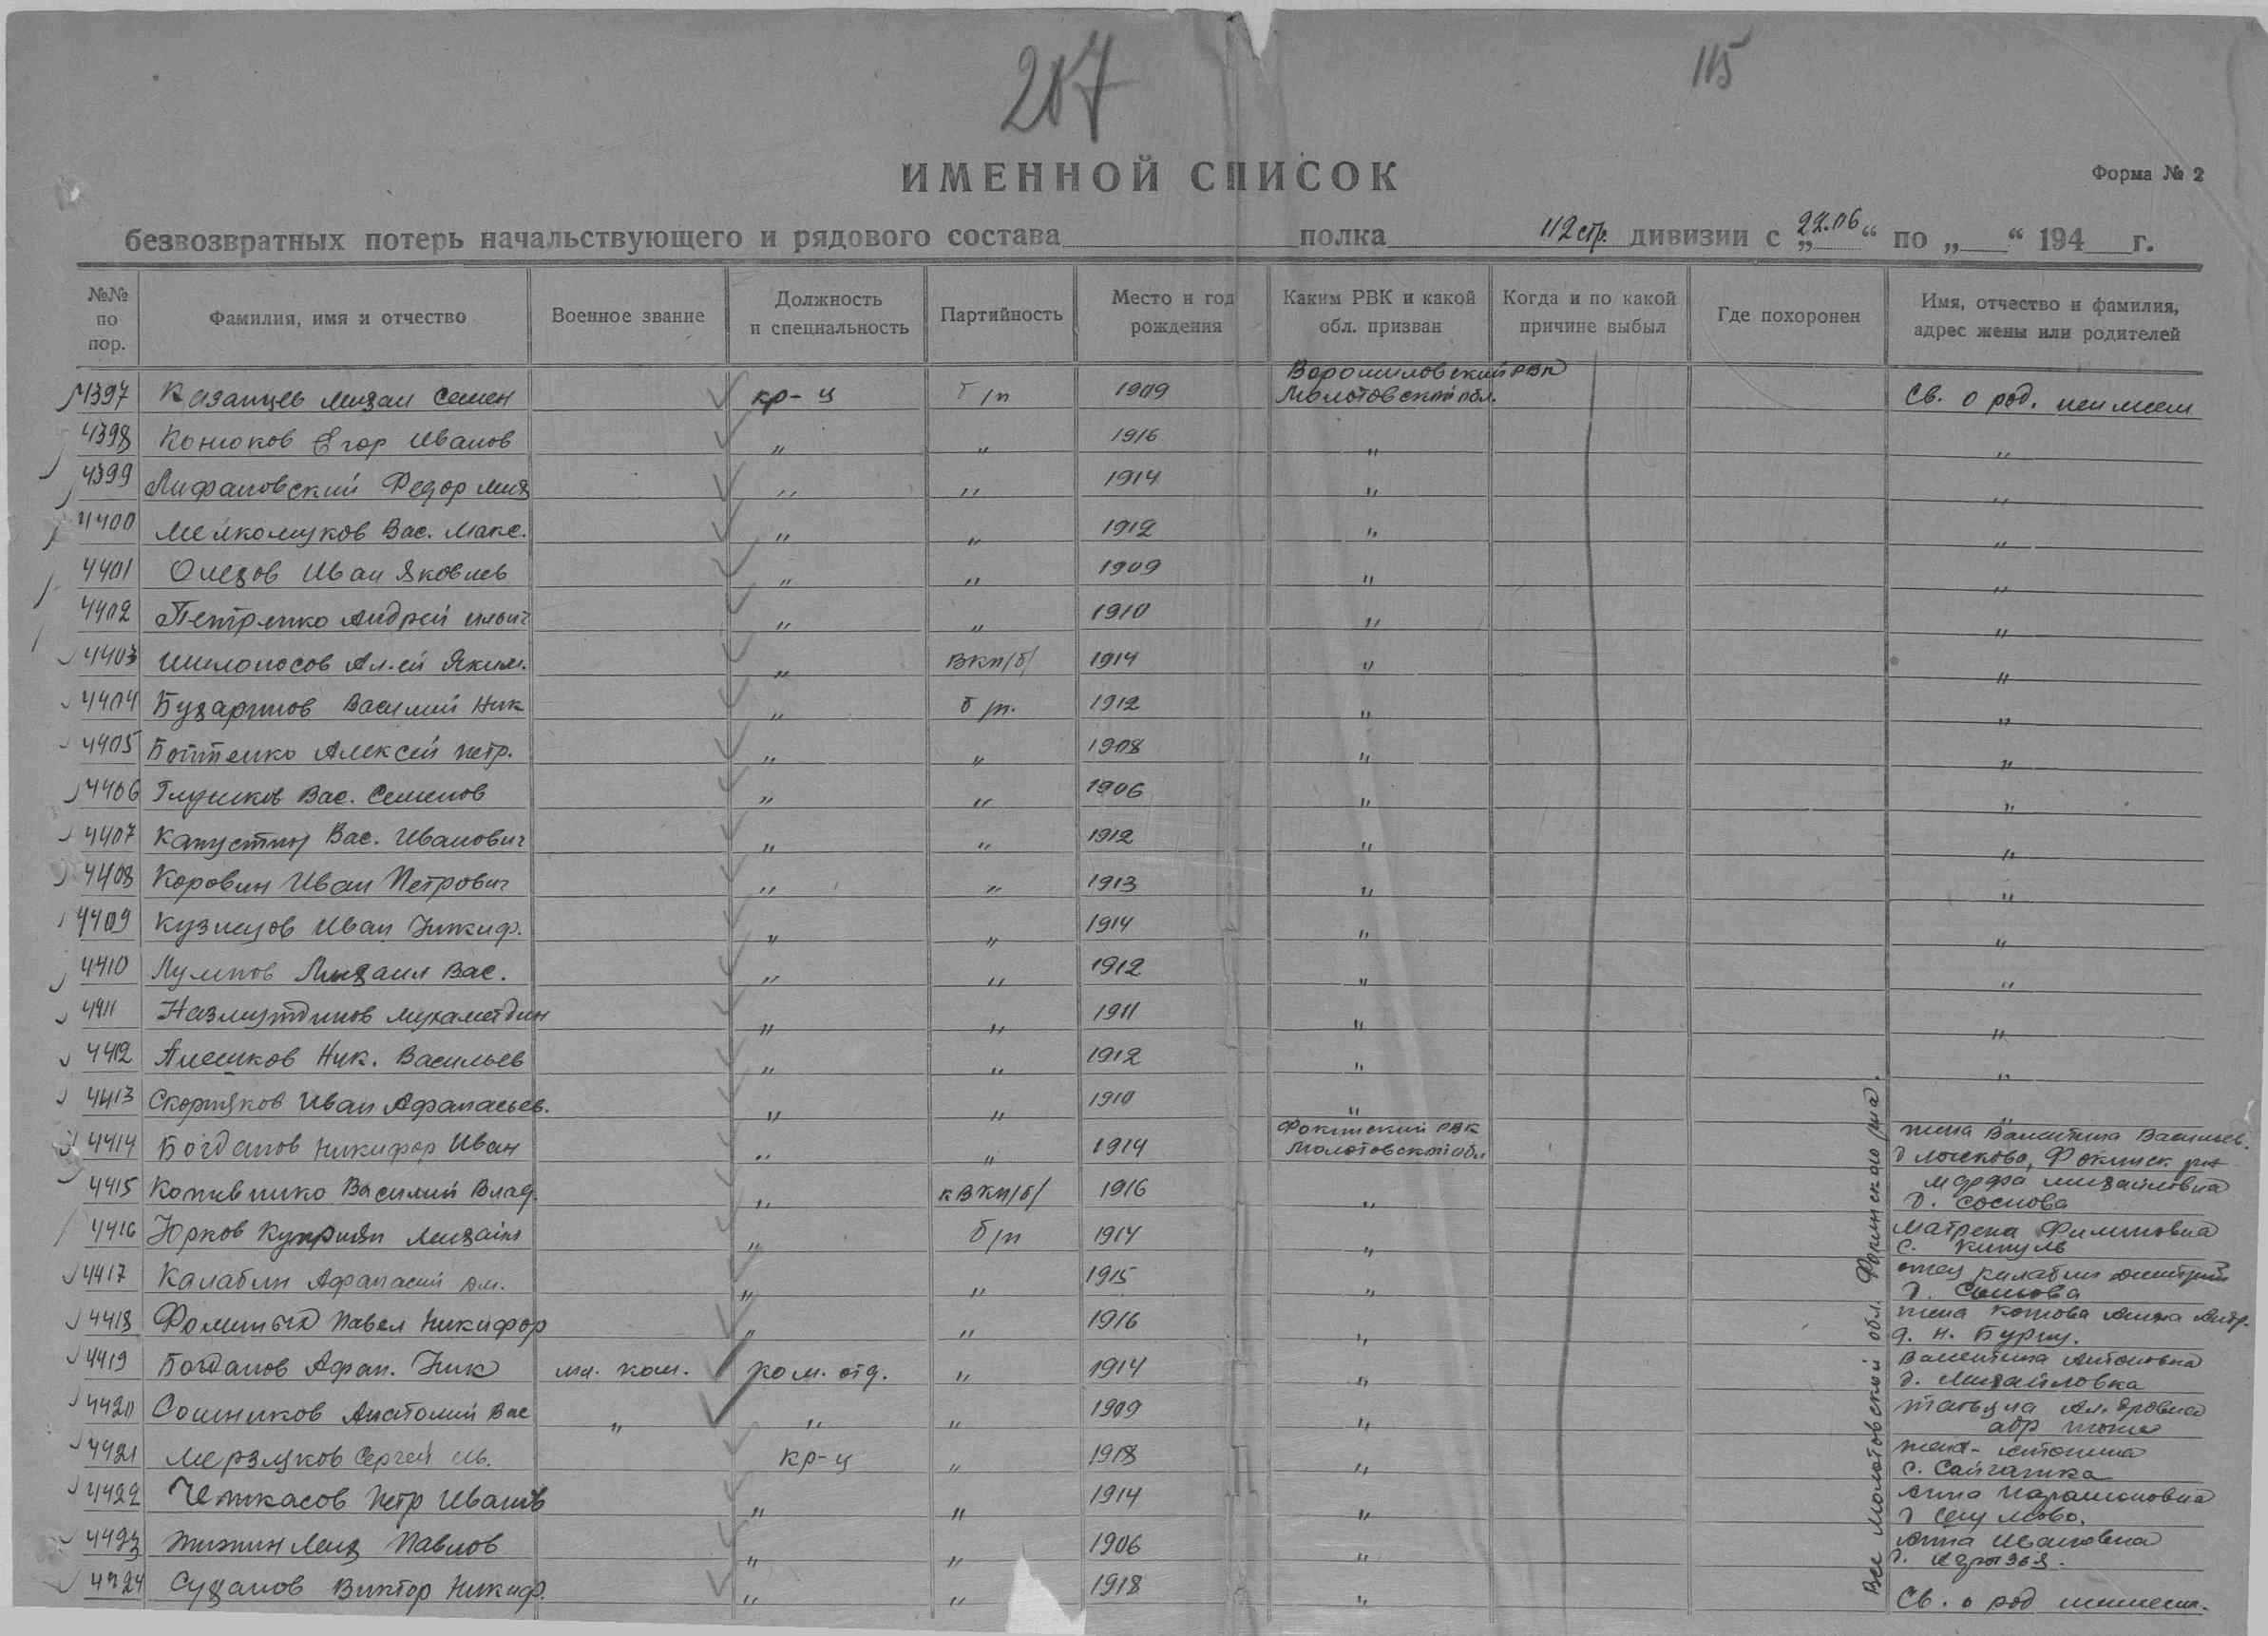 207
115
ИМЕННОЙ СПИСОК
Форма № 2
безвозвратных потерь начальствующего и рядового состава полка 112 стр. дивизии с „22.06“ по „ “ 194 г.
№№ по пор. Фамилия, имя и отчество Военное звание Должность и специальность Партийность Место и год рождения Каким РВК и какой обл. призван Когда и по какой причине выбыл Где похоронен Имя, отчество и фамилия, адрес жены или родителей
4397 Казанцев Михаи Семен кр-ц б/п 1909 Ворошиловский РВК Молотовской обл. Св. о род. не имеем
4398 Конюков Егор Иванов „ „ 1916 „ „
4399 Лифановский Федор Мих „ „ 1914 „ „
4400 Мелкомуков Вас. Макс. „ „ 1912 „ „
4401 Олехов Иван Яковлев „ „ 1909 „ „
4402 Петренко Андрей Ильич „ „ 1910 „ „
4403 Шилоносов Ал-ей Яким. „ ВКП/б/ 1914 „ „
4404 Бухаринов Василий Ник „ б/п. 1912 „ „
4405 Алексей Петр. „ „ 1908 „ „
4406 Глушков Вас. Семенов „ „ 1906 „ „
4407 Капустин Вас. Иванович „ „ 1912 „ „
4408 Коровин Иван Петрович „ „ 1913 „ „
4409 Кузнецов Иван Никиф. „ „ 1914 „ „
4410 Лумпов Михаил Вас. „ „ 1912 „ „
4411 Назмутдинов Мухаметдин „ „ 1911 „ „
4412 Ник. Васильев „ „ 1912 „ „
4413 Скорняков Иван Афанасьев. „ „ 1910 „ „
4414 Богданов Никифор Иван „ „ 1914 Фокинский РВК Молотовской обл жена Валентина Васильев.
Фокинск р-н
4415 Василий Влад. „ кВКП/б/ 1916 „ Марфа Михайловна
д. Соснова
4416 Юрков Куприян Михайл „ б/п 1914 „ Матрена Филиповна
с. Кипуль
4417 Калабин Афанасий Дм. „ „ 1915 „ отец Калабин Дмитрий
д.
4418 Фоминых Павел Никифор „ „ 1916 „ жена Котова Анна Андр.
д. Н.
4419 Богданов Афан. Ник мл. ком. ком. отд. „ 1914 „ Валентина Антоновна
д. Михайловка
4420 Сошников Анатолий Вас „ „ „ 1909 „ Татьяна Ал. дровна
адр тоже
4421 Мерзляков Сергей Ив. кр-ц „ 1918 „ жена - Антонина
с. Сайгатка
4422 Петр Иванов „ „ 1914 „ Анна Парамоновна
д
4423 Жижин Мих Павлов „ „ 1906 „ Анна Ивановна
д.
4424 Суханов Виктор Никиф. „ „ 1918 „ Св. о род не имеем.
Все Молотовской обл. Фокинского р-на.